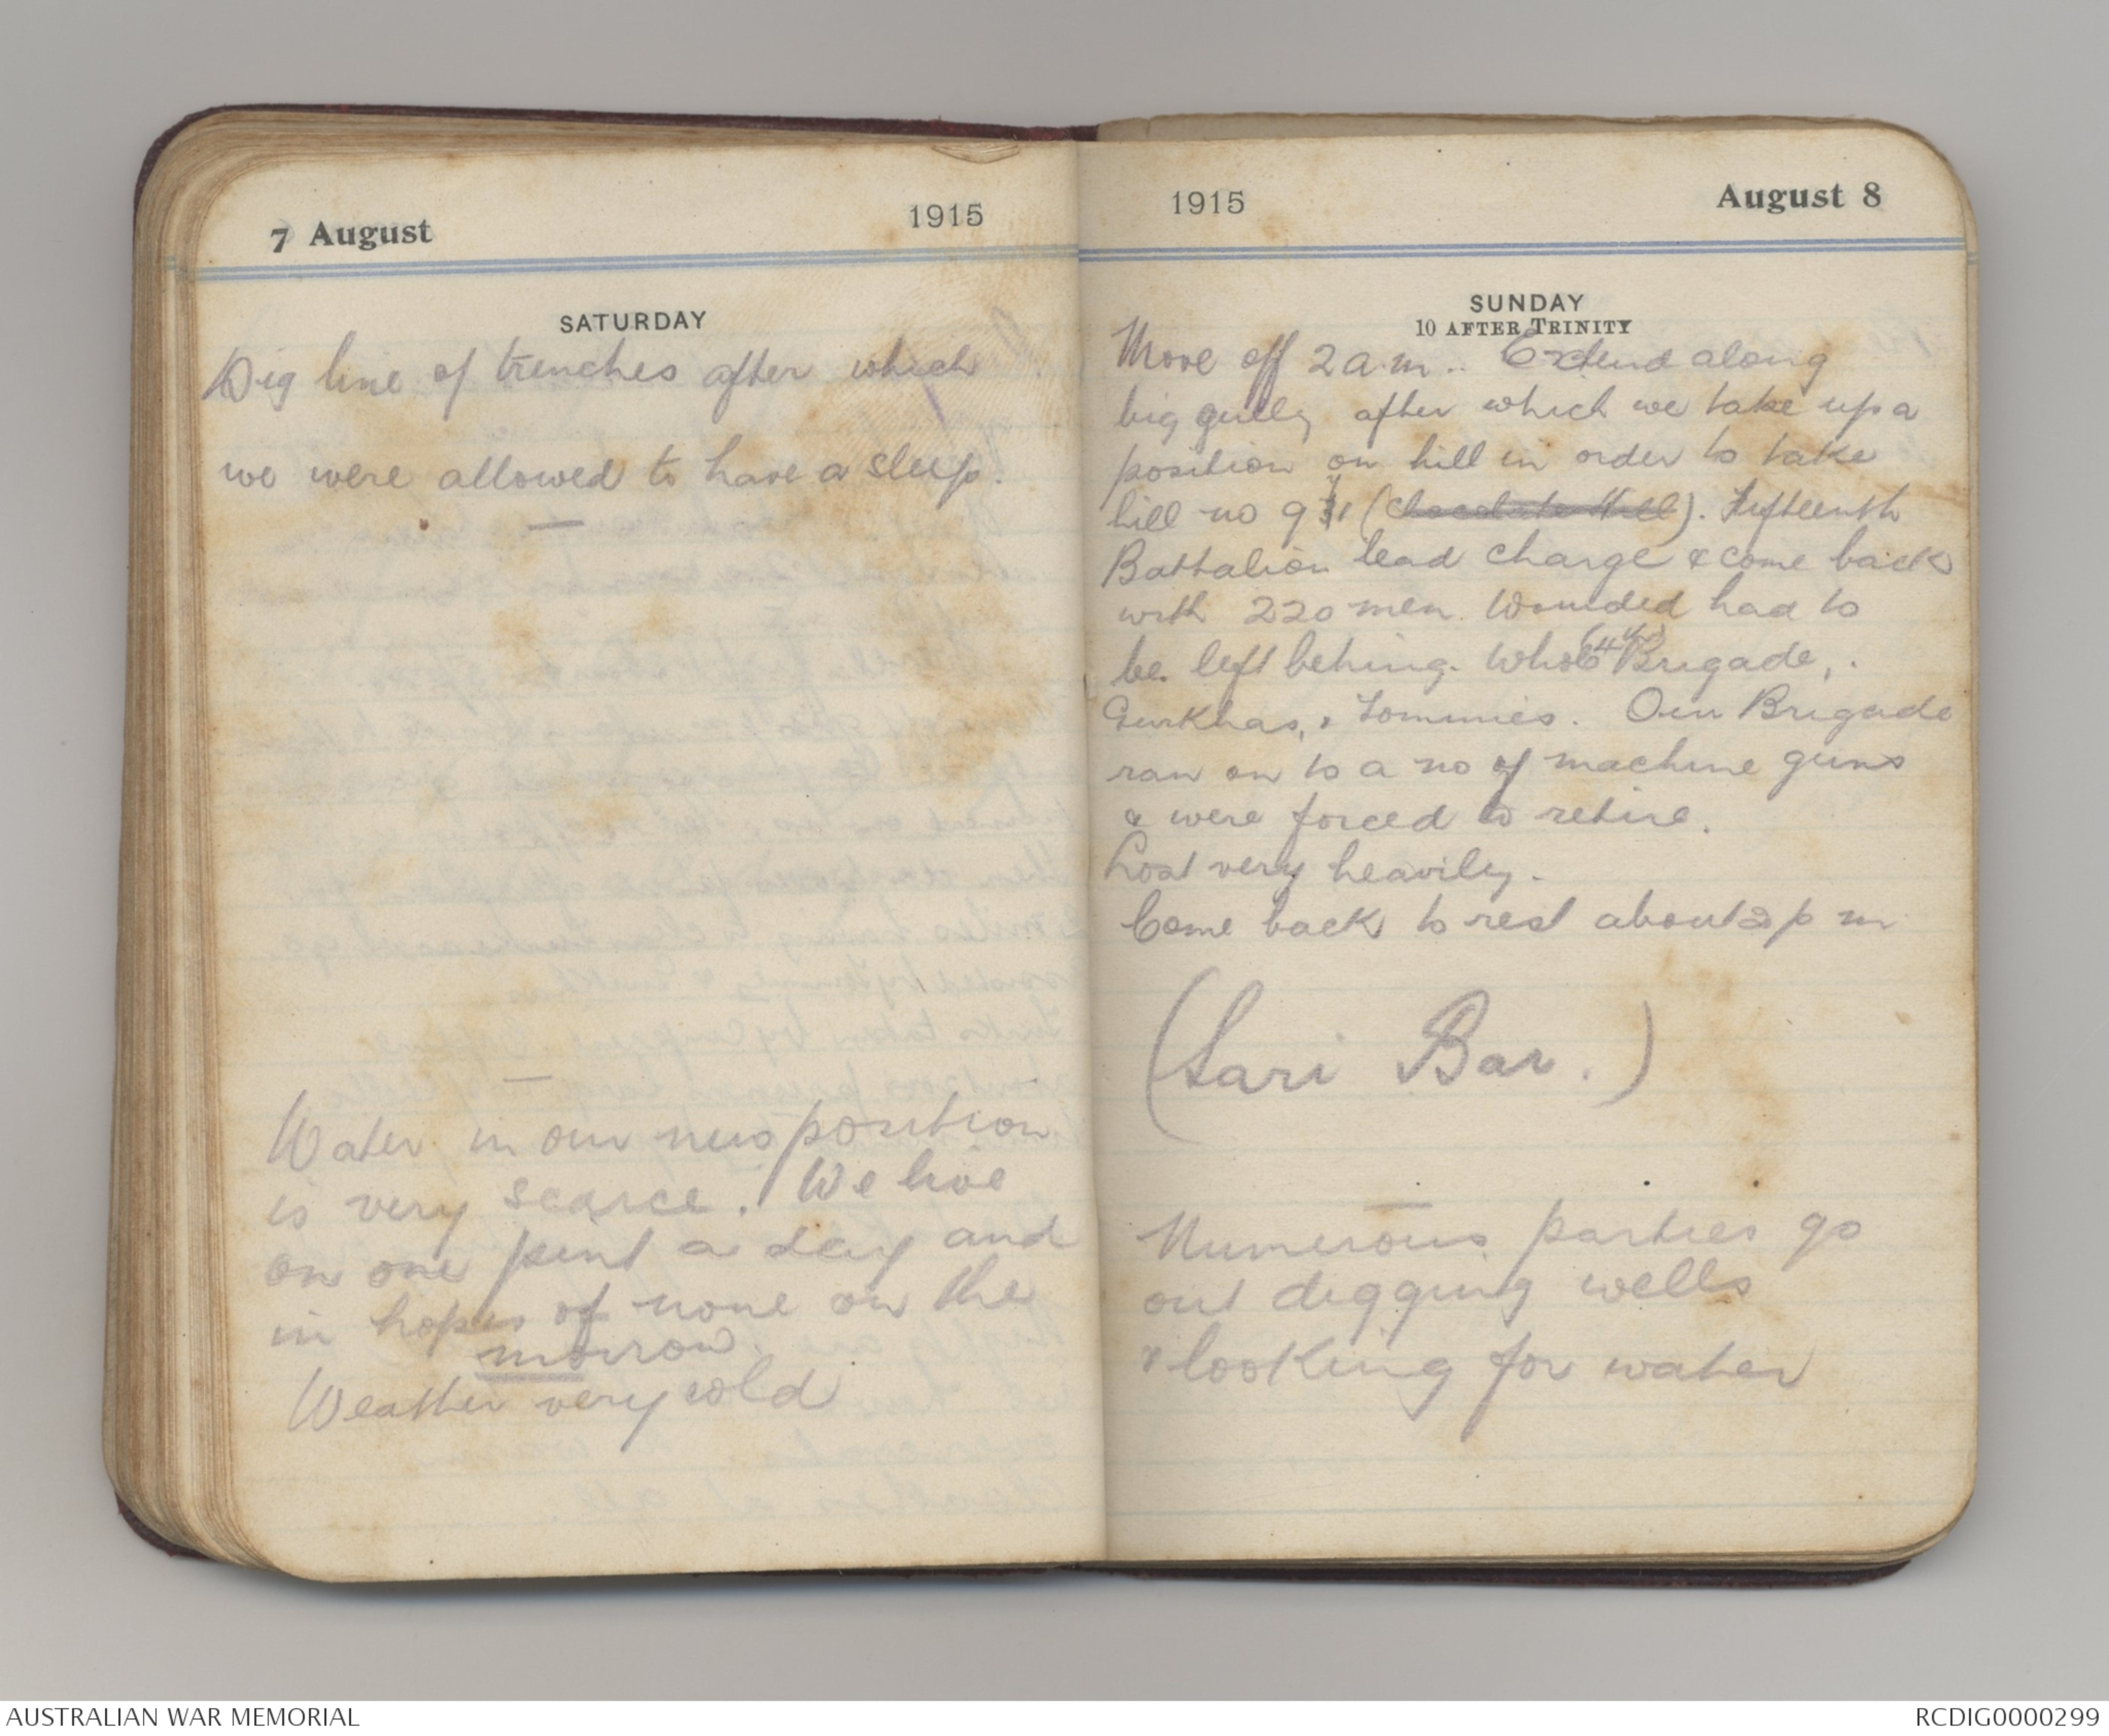 7 August 1915
SATURDAY
Dig line of trenches after which
we were allowed to have a sleep.
Water in our new position
is very scarce. We live
on one pint a day and
in hopes of none on the
morrow.
Weather very cold
1915 August 8
SUNDAY
10 AFTER TRINITY
Move off 2 a.m.. Extend along
big gully after which we take up a
position on hill in order to take
hill no 971 (Chocolate Hill). Fifteenth
Battalion lead charge & come back
with 220 men. Wounded had to
be left behing. Whole (4th) Brigade,.
Gurkhas, & Tommies. Our Brigade
ran on to a no of machine guns
& were forced to retire.
Lost very heavily.
Come back to rest about p m
(Sari Bar.)
Numerous parties go
out digging wells
& looking for water
AUSTRALIAN WAR MEMORIAL
RCDIG0000299